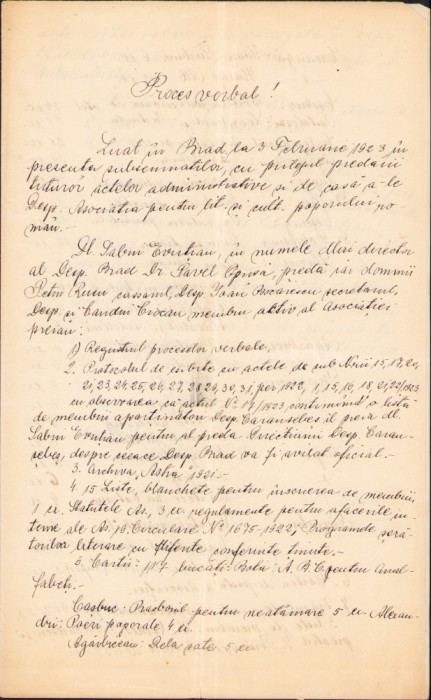 Proces verbal!
Luat în Brad, la 3 Februarie 1923 în
prezenta subsemnatilor, cu prilejul predării
tuturor actelor administrative si de casă a-le
Desp. Asociatia pentru lit. si cult. poporului ro
mân.-
Dl. Sabin Evutian, în numele dlui director
al Desp. Brad Dr. Pavel Oprisa, predă iar domnii
Petru Rusu cassarul, Desp. Ioan secretarul,
Desp. si Candin Ciocan membru aktiv al Asociatiei
preiau:
1) Registrul proceselor verbale,
2. Protocolul de exibite cu actele de sub Nrii 15, 17, 20,
21, 23, 24, 25, 26, 27, 28 29, 30, 31, per 1922, 1, 15, 16, 18, 21, 22/1923
cu observarea că actul Nr. 17/1923 continând o listă
de membrii apartinători Desp. Caransebes, îl preia dl.
Sabin Evutian pentru al preda Directiunii Desp. Caran-
sebes, despre ceeace Desp. Brad va fi avizat oficial.-
3. Archiva "Astra" 1921.-
4. 15 Liste, blanchete pentru înscrierea de membrii,
1 ex. Statutele As., 3 ex. regulamente pentru afacerile in-
terne ale As. 18. Circulare No 1675-1922, Programele seză-
torilor literare cu diferite conferinte tinute.-
5. Cărti: 117 bucăti: A. B. C. pentru Anal-
fabeti.-
Cosbuc: Răsboiul pentru neatârnare 5 ex. Alexan-
dri: Poezi poporale 4 ex.
Agârbiceanu: Dela sate 5 ex